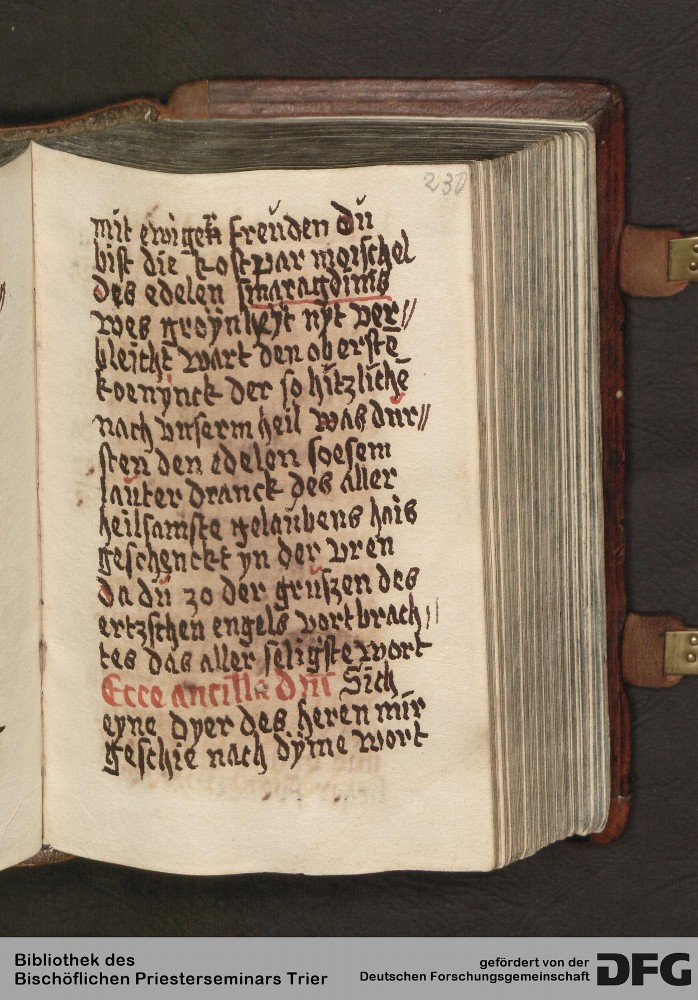 230
mit ewigen freüden dü
bist die kostpar morschel
des edelen smaragdinis
wes groÿnheÿt nÿt ver//
bleicht wart den oberstē
koenÿnck der so hitzlichē
nach vnserm heil was dur//
sten den edelen soesem
lauter dranck des aller
heilsamste gelaubens hais
geschenckt yn der vren
da dü zo der grüszen des
ertzschen engels vortbrach//
tes das aller seligste wort
Ecce ancilla dn̄i Sich
eyne dyer des heren mir
geschie nach dÿme wort
Bibliothek des
Bischöflichen Priesterseminars Trier
gefördert von der
Deutschen Forschungsgemeinschaft
DFG